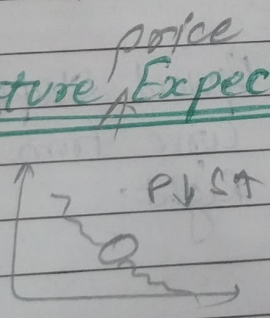 price
ture Expec
P↓ S↑